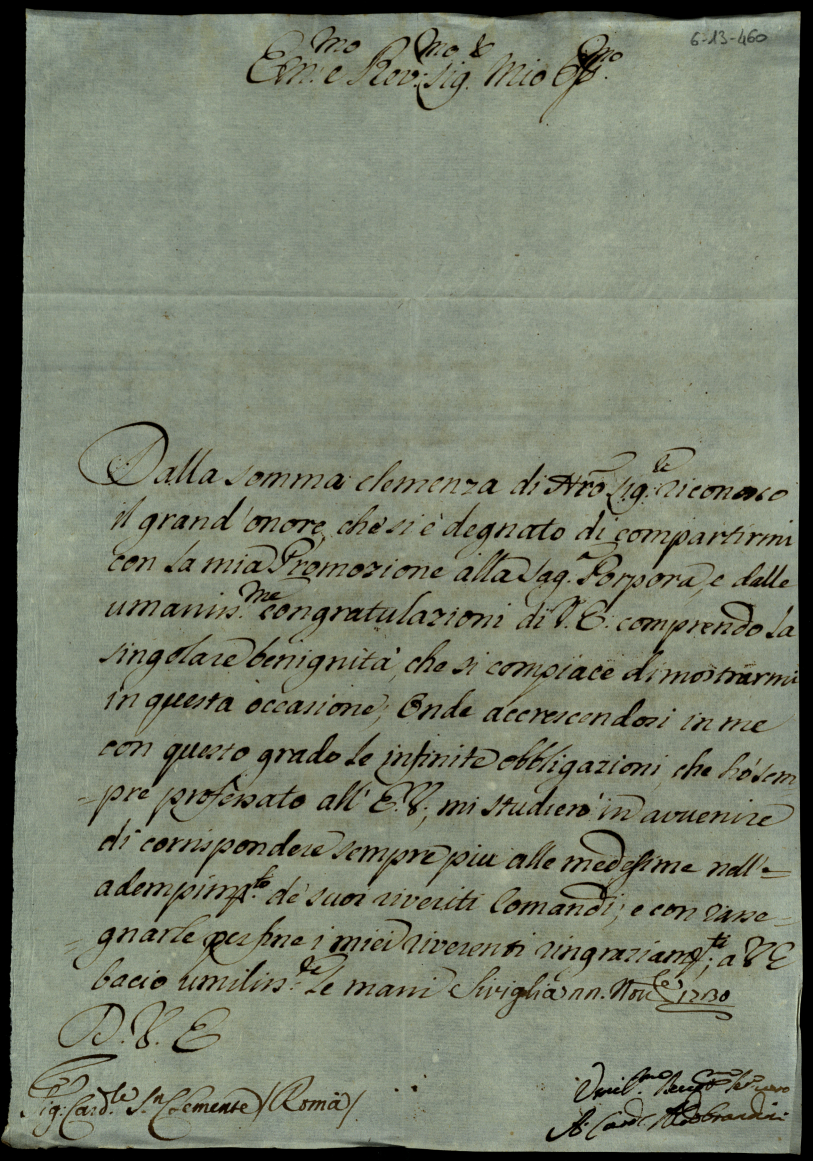 6-13-460
Em.mo e Rev.mo Sig.r Mio Oss.mo
Dalla somma clemenza di Nrõ Sig.re riconosco
il grand'onore, che si è degnato di compartirmi
con la mia Promozione alla Sag.a Porpora, e dalle
umaniss.me congratulazioni di V. E. comprendo la
singolare benignità, che si compiace dimostrarmi
in questa occasione; Onde accrescendosi in me
con questo grado le infinite obbligazioni, che hò sem
-pre professato all' E. V., mi studierò in avvenire
di corrispondere sempre più alle medesime nell'=
adempim.to de' suoi riveriti Comandi; e con rasse-
=gnarle per fine i miei riverenti ringraziam.ti, a V E
bacio umiliss.te le mani Siviglia 11. Nov.re 1730
D. V. E
Sig: Card.le S.n Clemente /Roma/
Umil.mo
A. Card. Aldobrandini